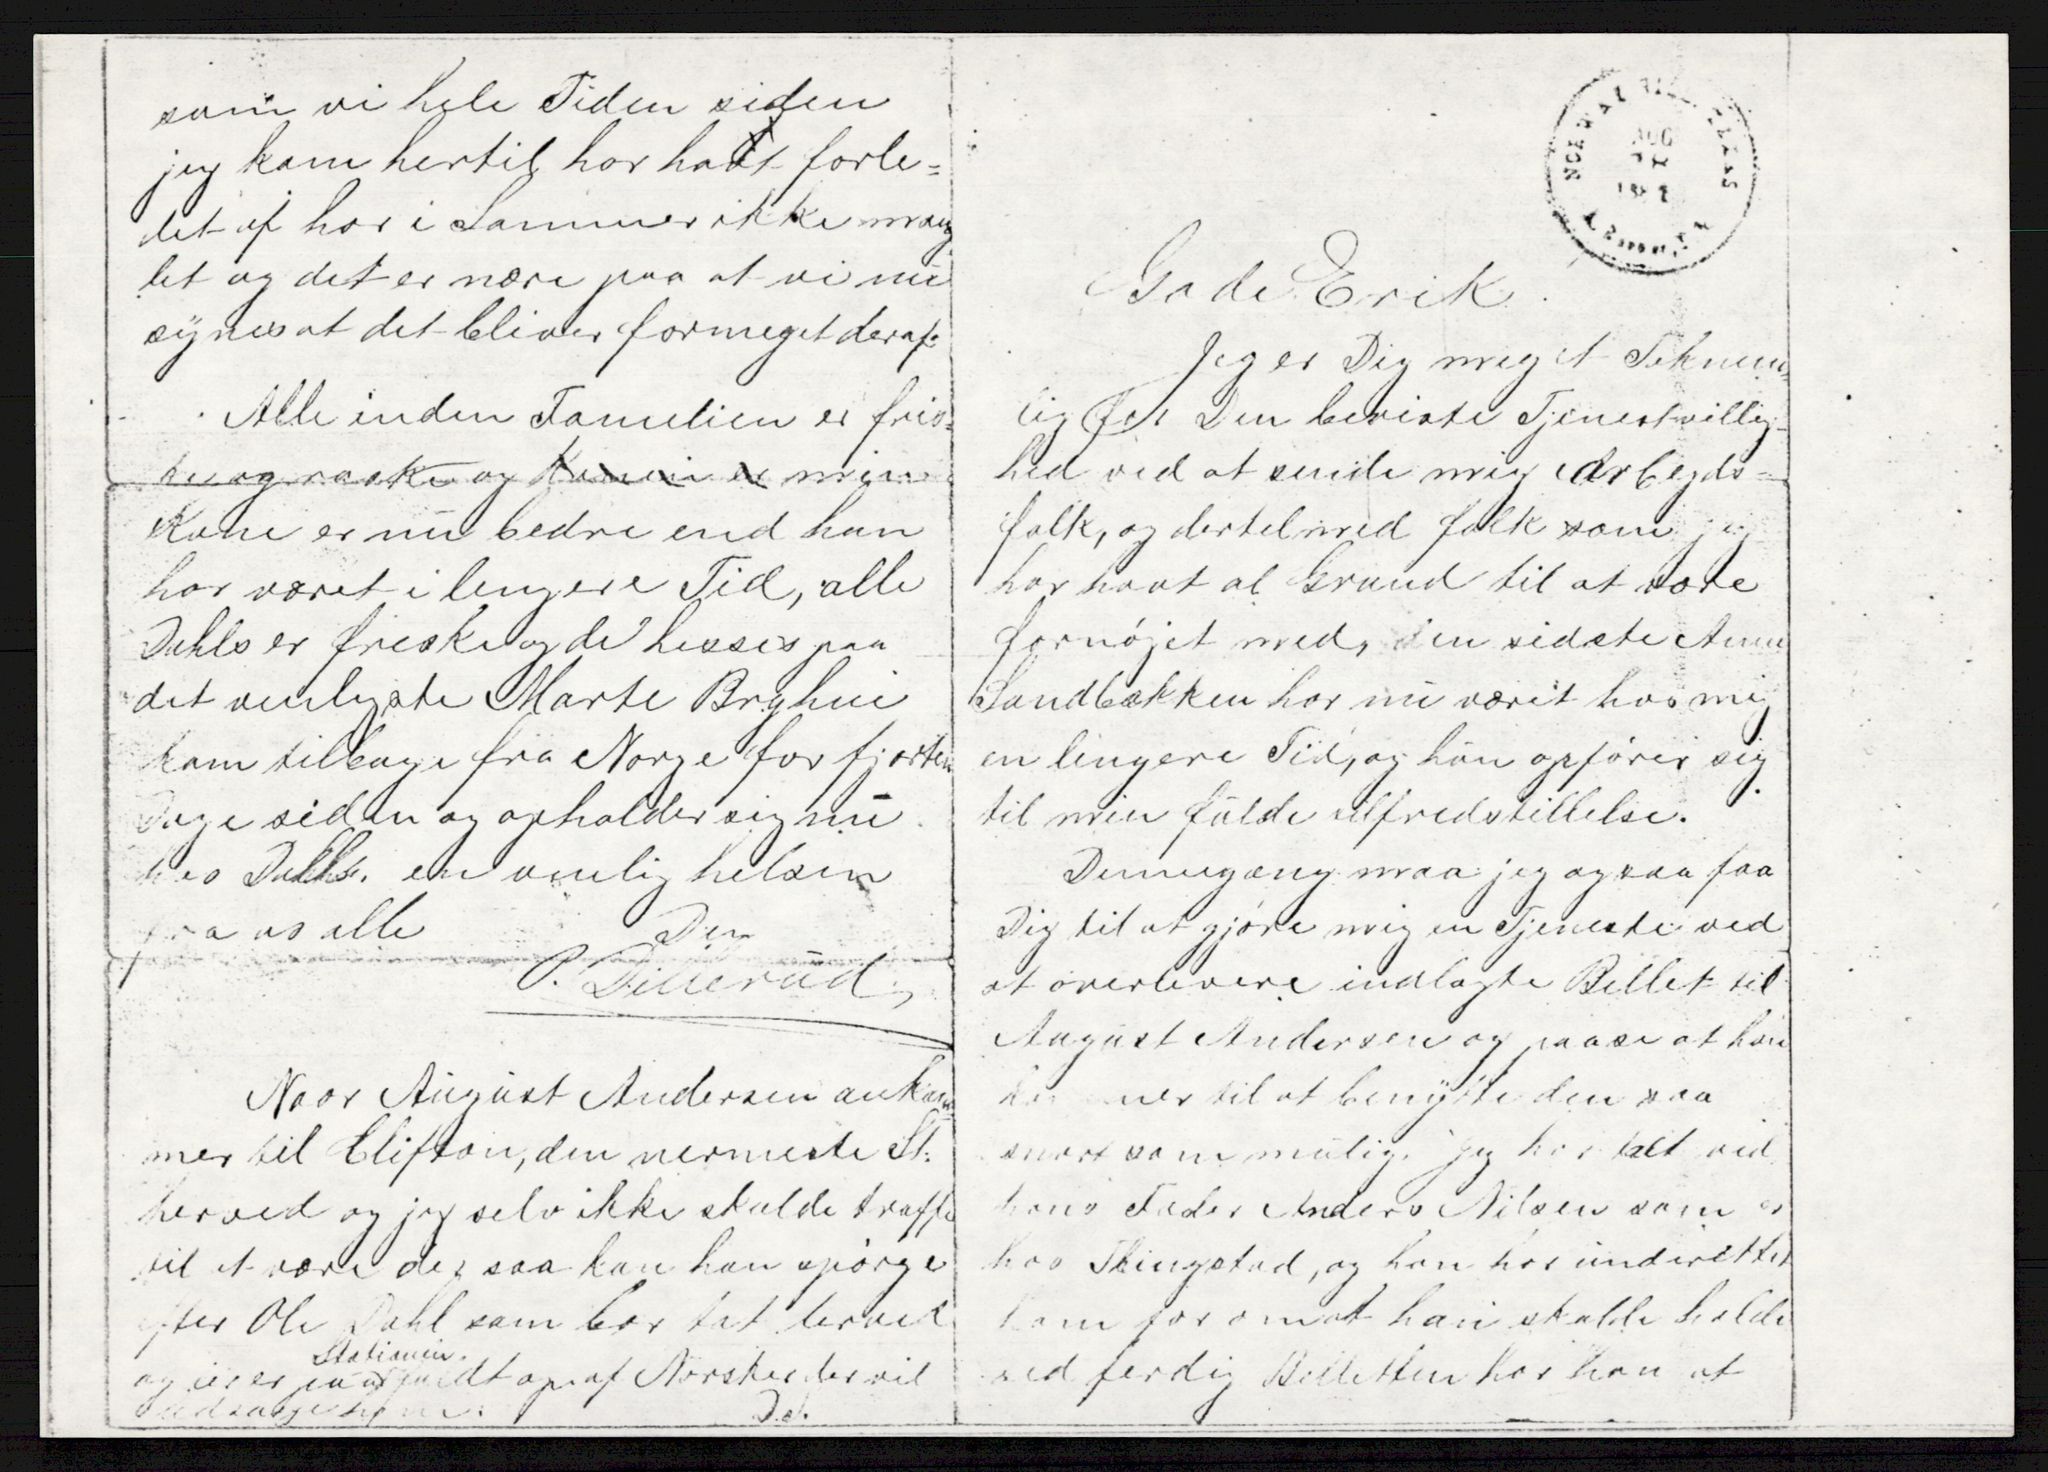 som vi hele Tiden siden
jeg kom hertil har hadt forle=
det af har i Sommer ikke mang
let og det er nære paa at vi nu
synes at det bliver formeget deraf.
Alle inden Familien er fris=
ke og raske og Konen er min
Kone er nu bedre end hun
har været i lengere Tid, alle
Dahls er friske og de hesses paa
det venligste Marte Bryhni
kom tilbage fra Norge for fjorten
Dage siden og opholder sig nu
hos Dahls. en venlig helsen
fra os alle Din
P. Dillerud,
Naar August Andersen ankom=
mer til Clifton, den nermeste St.
herved og jeg selv ikke skulde træffe
til at være der saa kan han spörge
efter Ole Dahl som bor tæt herved
Stationen.
og der er fuldt op af Norske der vil
D.S.
NORWAY MILLS TEXAS
AUG
Gode Erik.
Jeg er Dig meget Teknem=
lig for Den beviste Tjenestvillig=
hed ved at sende mig Arbejds=
folk, og dertel med folk som jeg
har havt al Grund til at være
fornöjet med, den sidste Anne
Sandbækken har nu været hos mig
en lengere Tid, og hun opförer sig
til min fulde tilfredstillelse.
Dennegang maa jeg ogsaa faa
Dig til at gjöre mig en Tjeneste ved
at overlevere indlagte Billet til
August Andersen og paase at han
kommer til at benytte den saa
snart som mulig. jeg har talt ved
hans Fader Anders Nilsen som er
hos Ringstad, og han har underettet
ham for om at han skulde holde
sed ferdig Billetten har han at